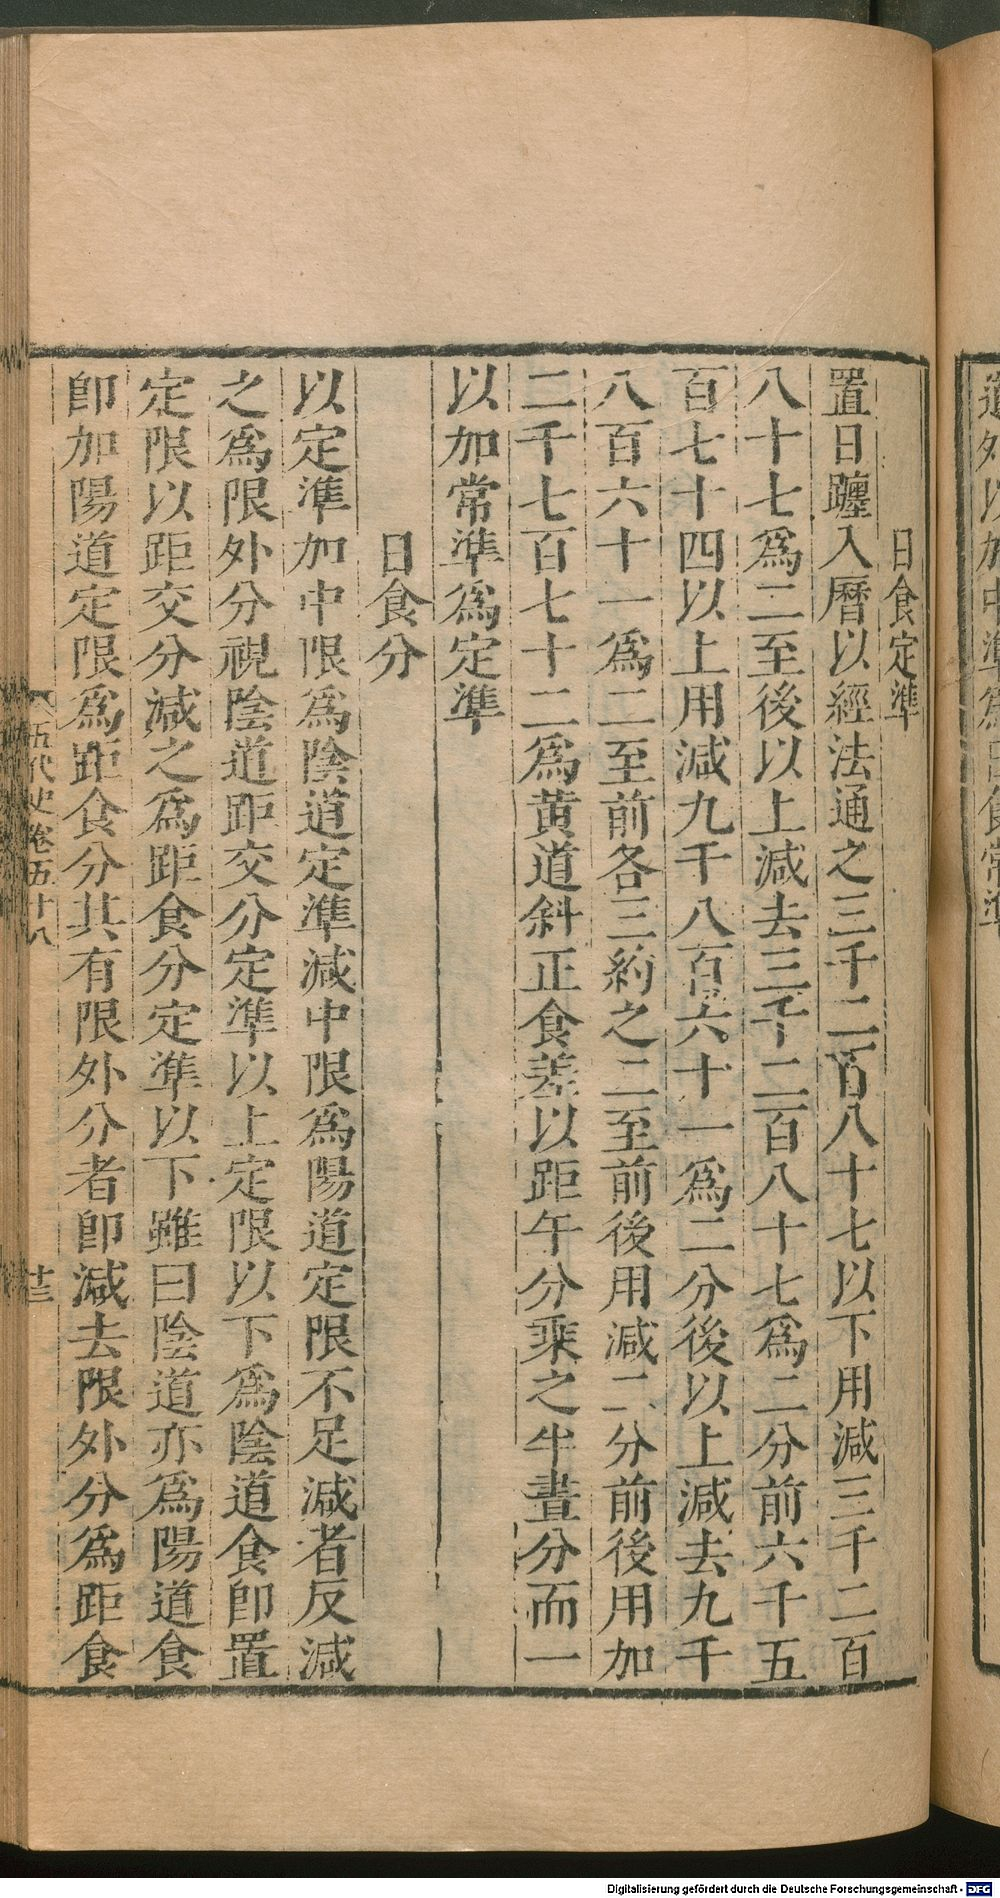 日食定準
置日躔入曆以經法通之三千二百八十七以下用減三千二百
八十七爲二至後以上減去三千二百八十七爲二分前六千五
百七十四以上用減九千八百六十一爲二分後以上減去九千
八百六十一爲二至前各三約之二至前後用減二分前後用加
二千七百七十二爲黄道斜正食差以距午分乘之半晝分而一
以加常準爲定準
日食分
以定準加中限爲陰道定準減中限爲陽道定限不足減者反減
之爲限外分視陰道距交分定準以上定限以下爲陰道食即置
定限以距交分減之爲距食分定準以下雖曰陰道亦爲陽道食
即加陽道定限爲距食分其有限外分者即減去限外分爲距食
五代史卷五十八
十三
Digitalisierung gefördert durch die Deutsche Forschungsgemeinschaft - DFG